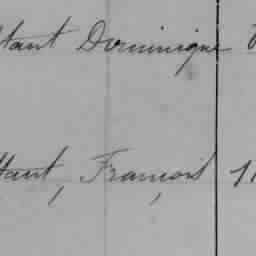 tant Dominique
tant, François 11